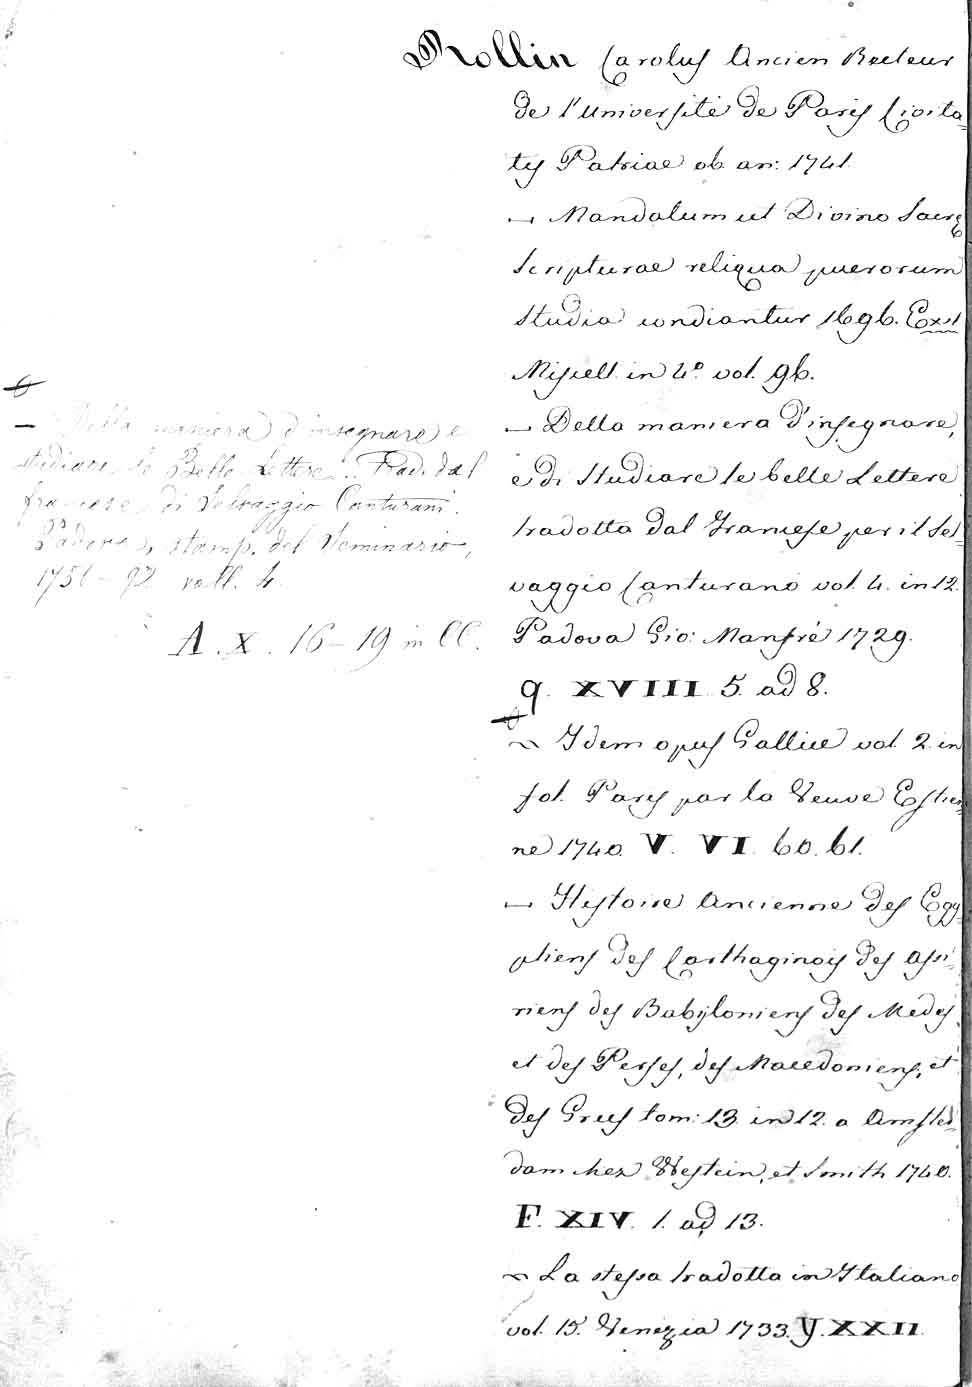 Rollin Carolus Ancien Recteur
de l'université de Paris Civita-
tis Patriae ob. an: 1741.
— Mandatum ut Divino Sacrę
Scripturae reliqua puerorum
studia condiantur 1696. Exst
Miscell. in 4º vol. 96.
— Della maniera d'insegnare,
e di studiare le belle Lettere
tradotta dal Francese per il Sel-
vaggio Canturano vol. 4. in 12.
Padova Gio: Manfrè 1729.
q. XVIII. 5. ad 8.
~ Idem opus Gallice vol. 2. in
fol. Paris par la Veuve Estien-
ne 1740. V. VI. 60. 61.
— Histoire Ancienne des Egy-
ptiens des Carthaginois des Assi-
riens des Babyloniens des Medes,
et des Perses, des Macedoniens, et
des Grecs tom: 13. in 12. a Amster-
dam chez Westein, et Smith 1740.
F. XIV. 1. ad 13.
~ La stessa tradotta in Italiano
vol. 15. Venezia 1733. Y. XXII
— Della maniera d'insegnare e
studiare le Belle Lettere. Trad. dal
francese di Selvaggio Canturani.
Padova, stamp. del Seminario,
voll. 4.
A. X. 16–19 in